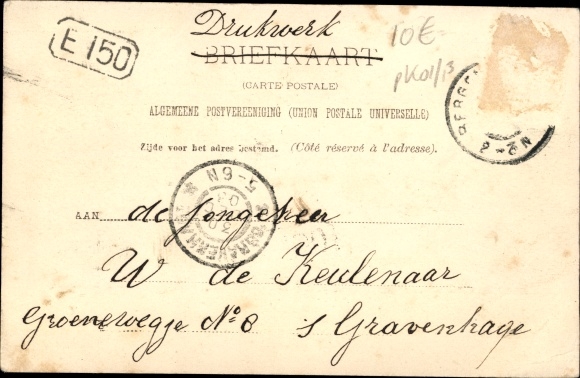 Drukwerk
E 150
BRIEFKAART
10€
pk01/13
(CARTE POSTALE)
ALGEMEENE POSTVEREENIGING (UNION POSTALE UNIVERSELLE)
Zijde voor het adres bestemd. (Côté réservé à l'adresse).
5-6N
AAN de Jongeheer
W de Keulenaar
Groenewegje No 8 s Gravenhage